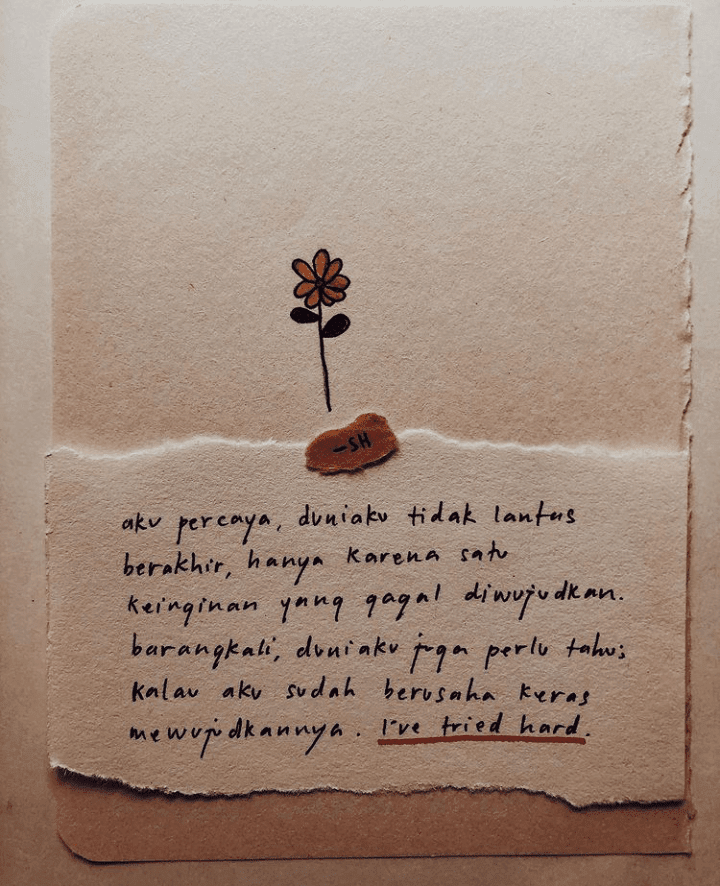 –SH
aku percaya, duniaku tidak lantas
berakhir, hanya karena satu
keinginan yang gagal diwujudkan.
barangkali, duniaku juga perlu tahu;
kalau aku sudah berusaha keras
mewujudkannya. I've tried hard.